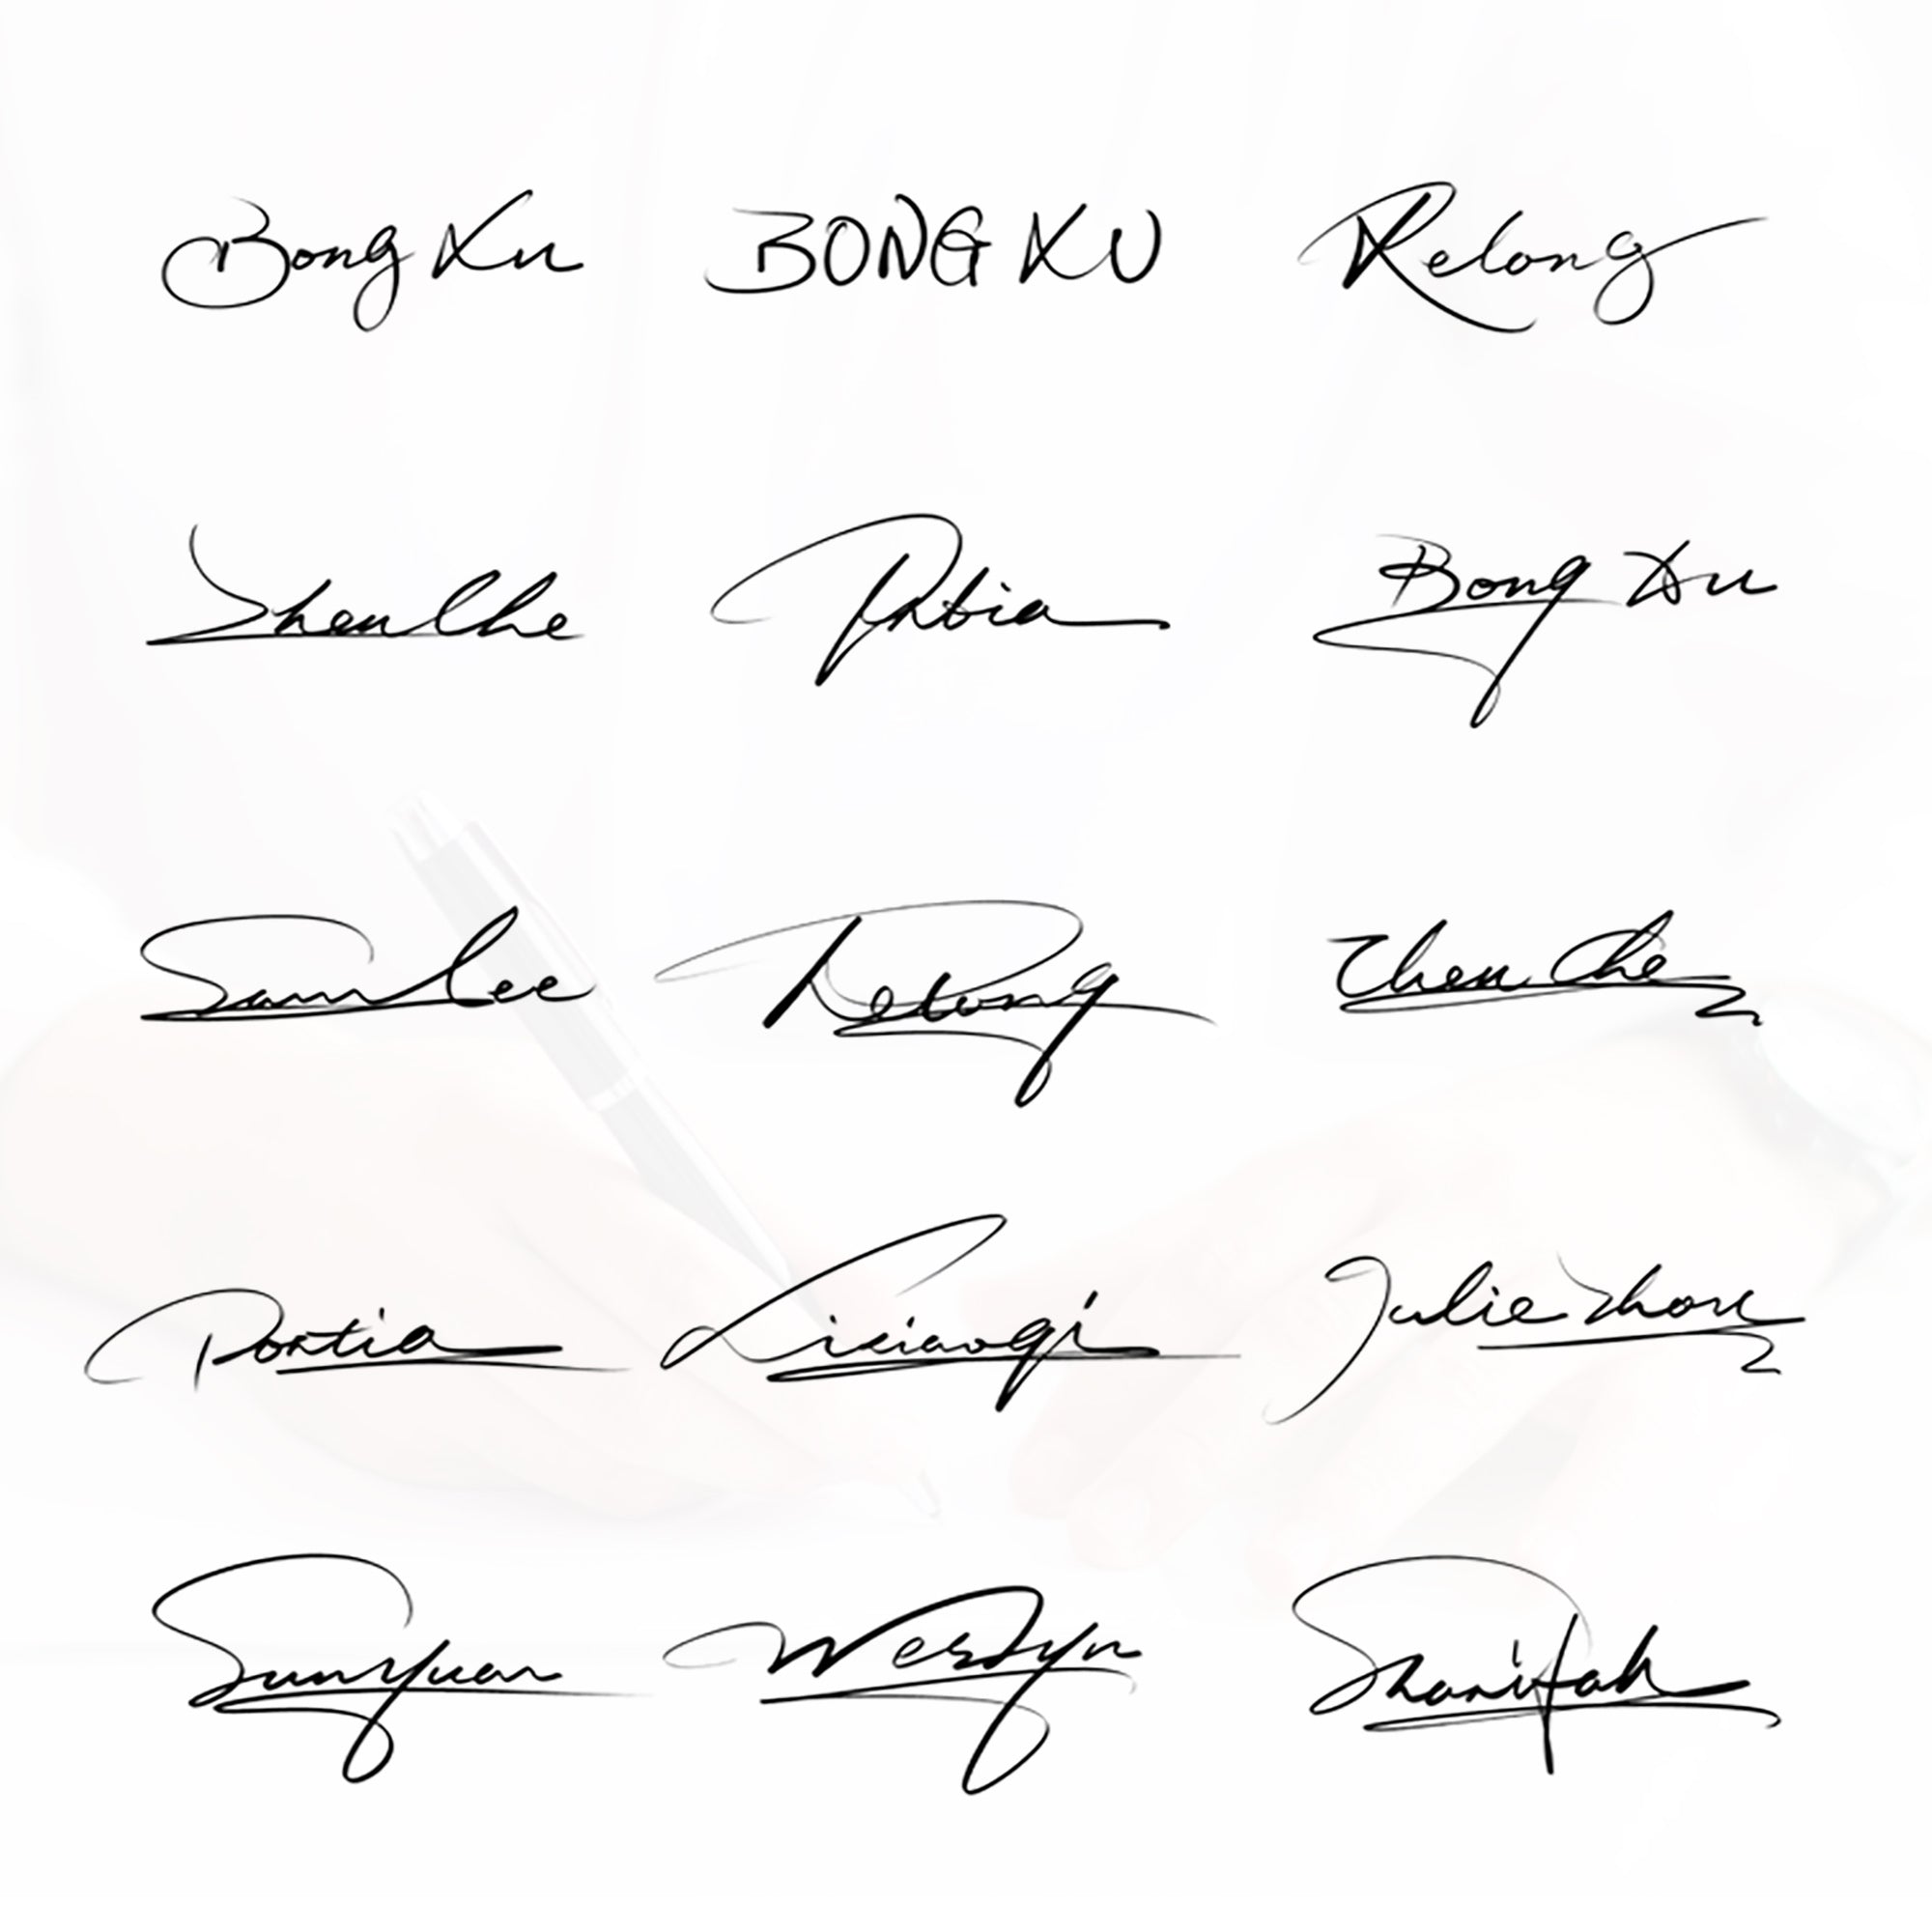 Bong Xu BONG XU Relong
Shen Che Portia Bong Xu
Sam Lee Relong Chen Che
Portia Lixiaoqi Julie Zhou
Sunyuan Sharifah